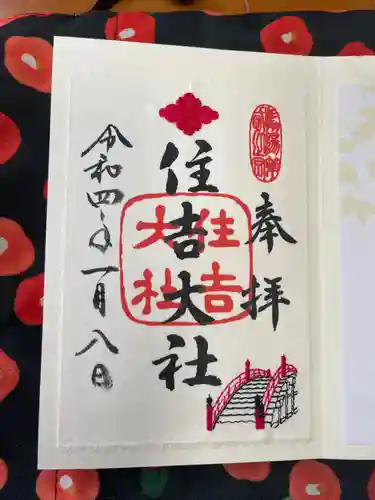 奉拝
住吉大社
住吉
大社
令和四年一月八日